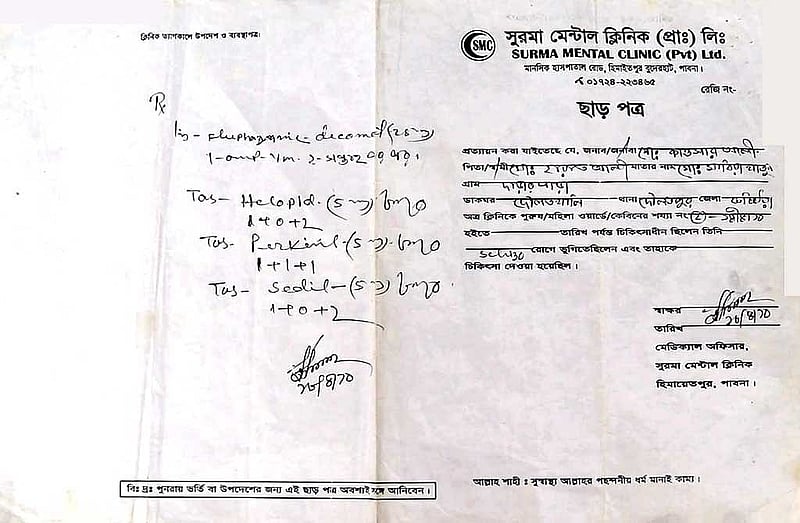 ক্লিনিক ত্যাগকালে উপদেশ ও ব্যবস্থাপত্র।
Rx
Inj - Fluphazonic - decanol (25 mg)
1 - amp - I/m. ২ - সপ্তাহ পর পর।
Tab - Halopid - (5 mg)
1+0+2
Tab - Perkinil - (5 mg)
1+1+1
Tab - Sedil - (5 mg)
1+0+2
২৮/৪/১০
বিঃ দ্রঃ পুনরায় ভর্তি বা উপদেশের জন্য এই ছাড় পত্র অবশ্যই সঙ্গে আনিবেন।
SMC
সুরমা মেন্টাল ক্লিনিক (প্রাঃ) লিঃ
SURMA MENTAL CLINIC (Pvt) Ltd.
মানসিক হাসপাতাল রোড, হিমাইতপুর বুদেরহাট, পাবনা।
✆ ০১৭২৪-২২৩৪৬৫
রেজি নং-
ছাড় পত্র
প্রত্যায়ন করা যাইতেছে যে, জনাব/জনাবা মোঃ কাওসার আলী
পিতা/স্বামী মোঃ হযরত আলী মাতার নাম মোঃ
গ্রাম
ডাকঘর দৌলতখালি থানা দৌলতপুর জেলা কুষ্টিয়া
অত্র ক্লিনিকে পুরুষ/মহিলা ওয়ার্ডে/কেবিনের শয্যা নং
হইতে তারিখ পর্যন্ত চিকিৎসাধীন ছিলেন তিনি
Schizo রোগে ভুগিতেছিলেন এবং তাহাকে
চিকিৎসা দেওয়া হয়েছিল।
স্বাক্ষর
তারিখ ২৮/৪/১০
মেডিক্যাল অফিসার,
সুরমা মেন্টাল ক্লিনিক
হিমায়েতপুর, পাবনা।
আল্লাহ শাফী : সুস্বাস্থ্য আল্লাহর পছন্দনীয় ধর্ম মানাই কাম্য।